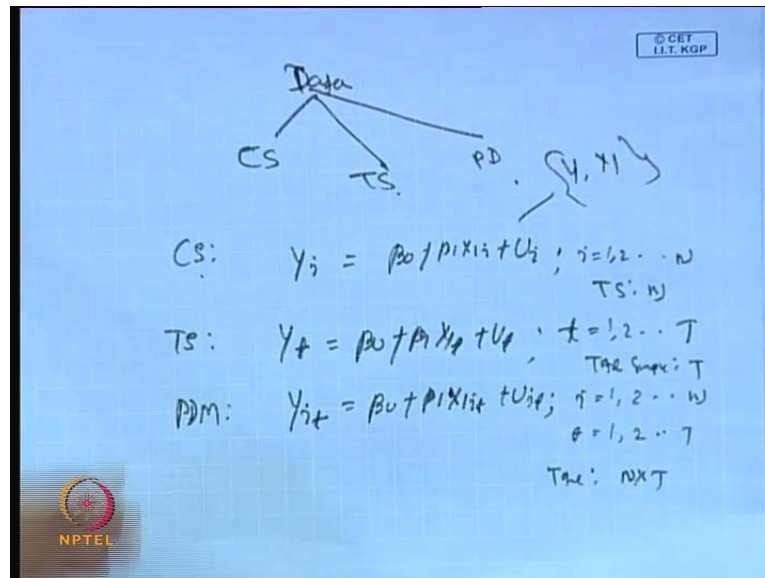 © CET
I.I.T. KGP
Data
CS TS. PD. {Y, X1}
CS: Yi = β0 + β1X1i + Ui ; i = 1, 2 . . N
TS: N
TS: Yt = β0 + β1X1t + Ut ; t = 1, 2 . . T
: T
PDM: Yit = β0 + β1X1it + Uit ; i = 1, 2 . . N
t = 1, 2 . . T
: N×T
NPTEL